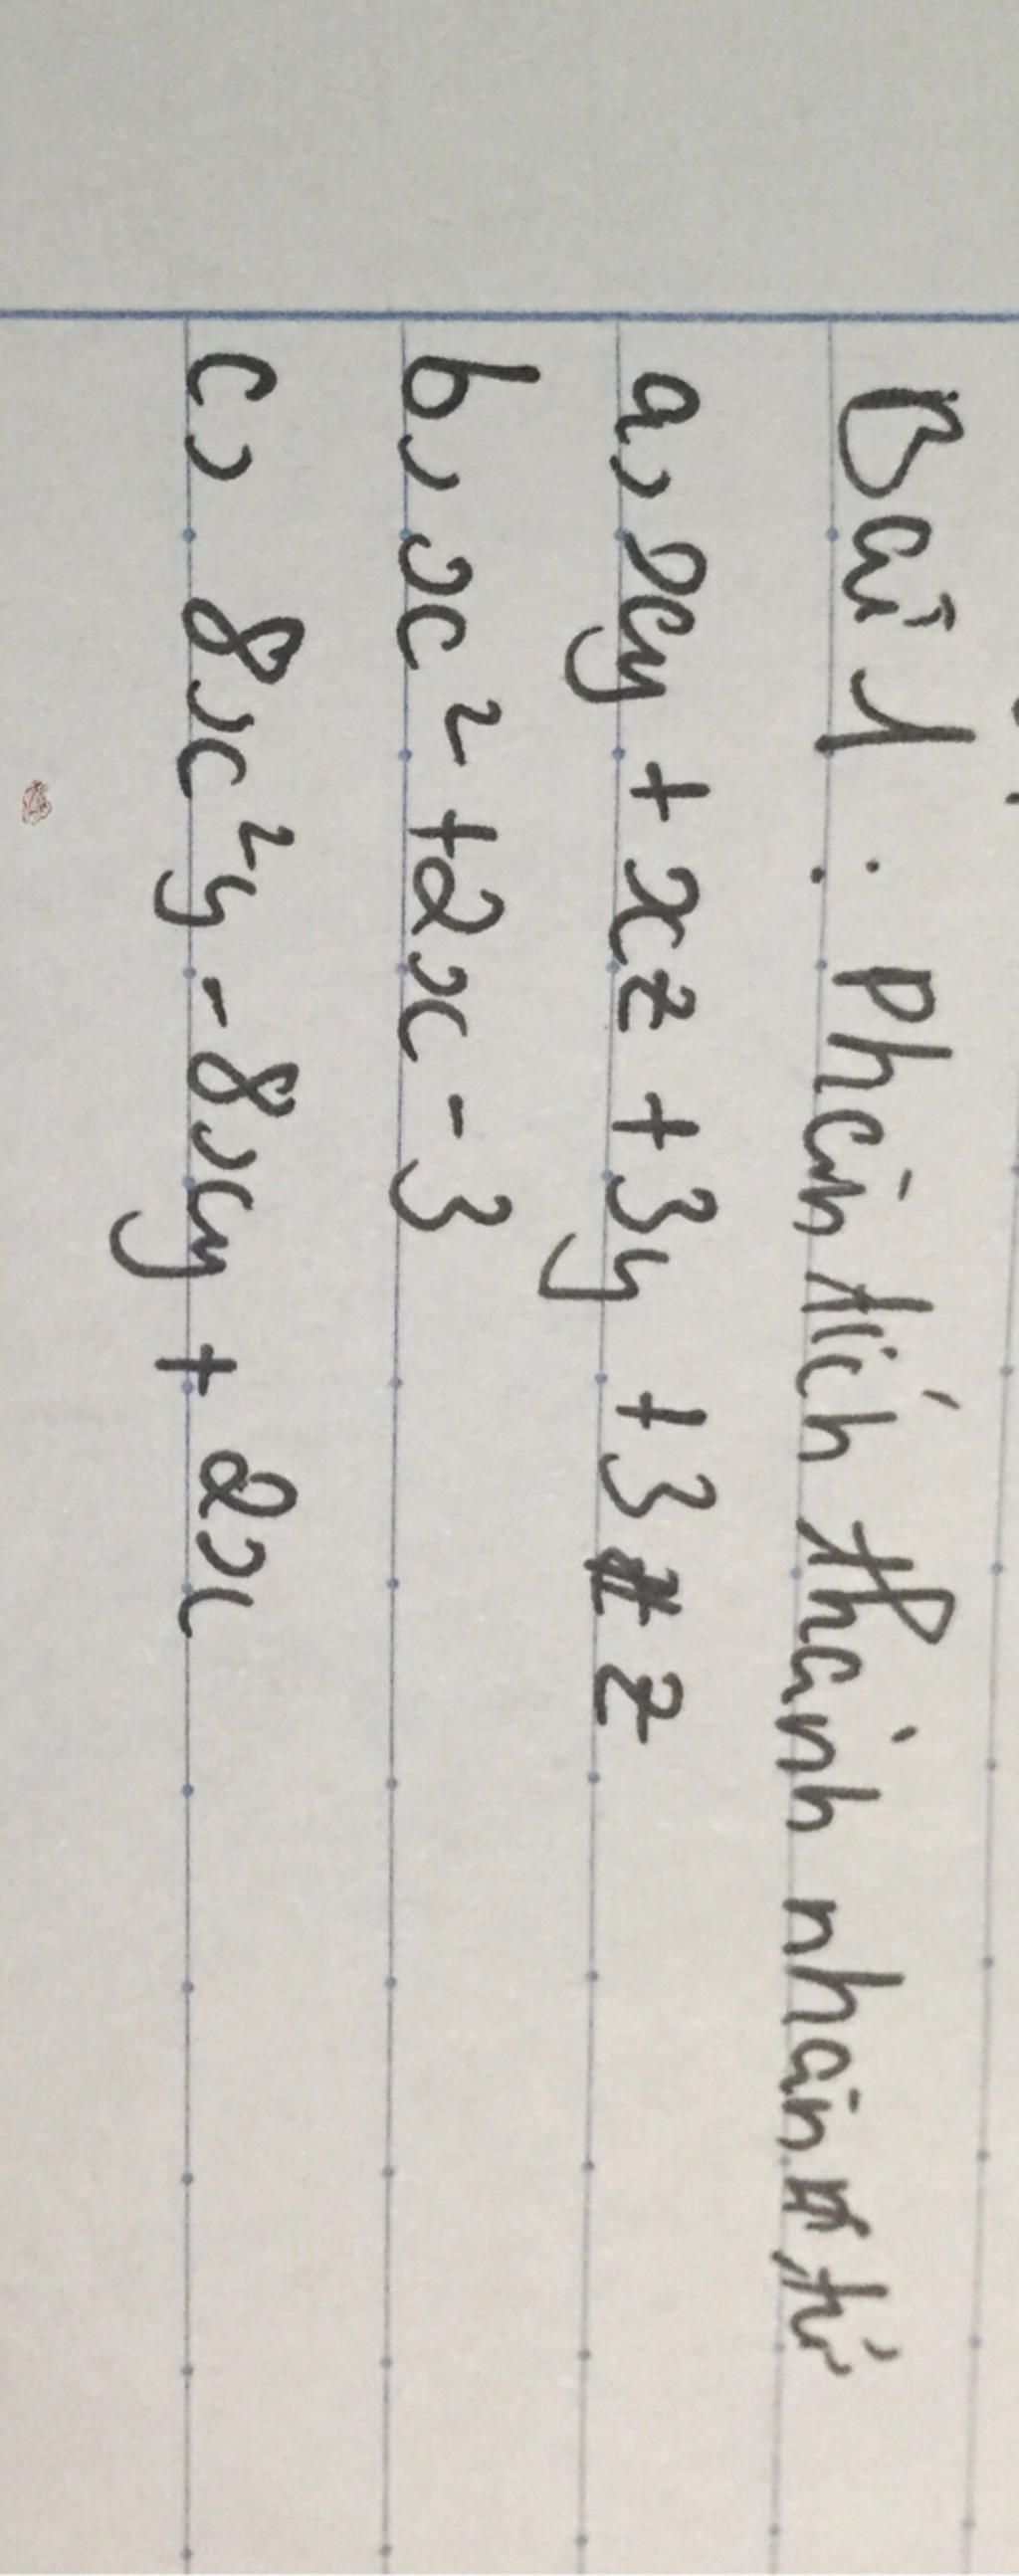 Bài 1 : Phân tích thành nhân tử
a, xy + xz + 3y + 3z
b, x² + 2x - 3
c, 8x²y - 8xy + 2x